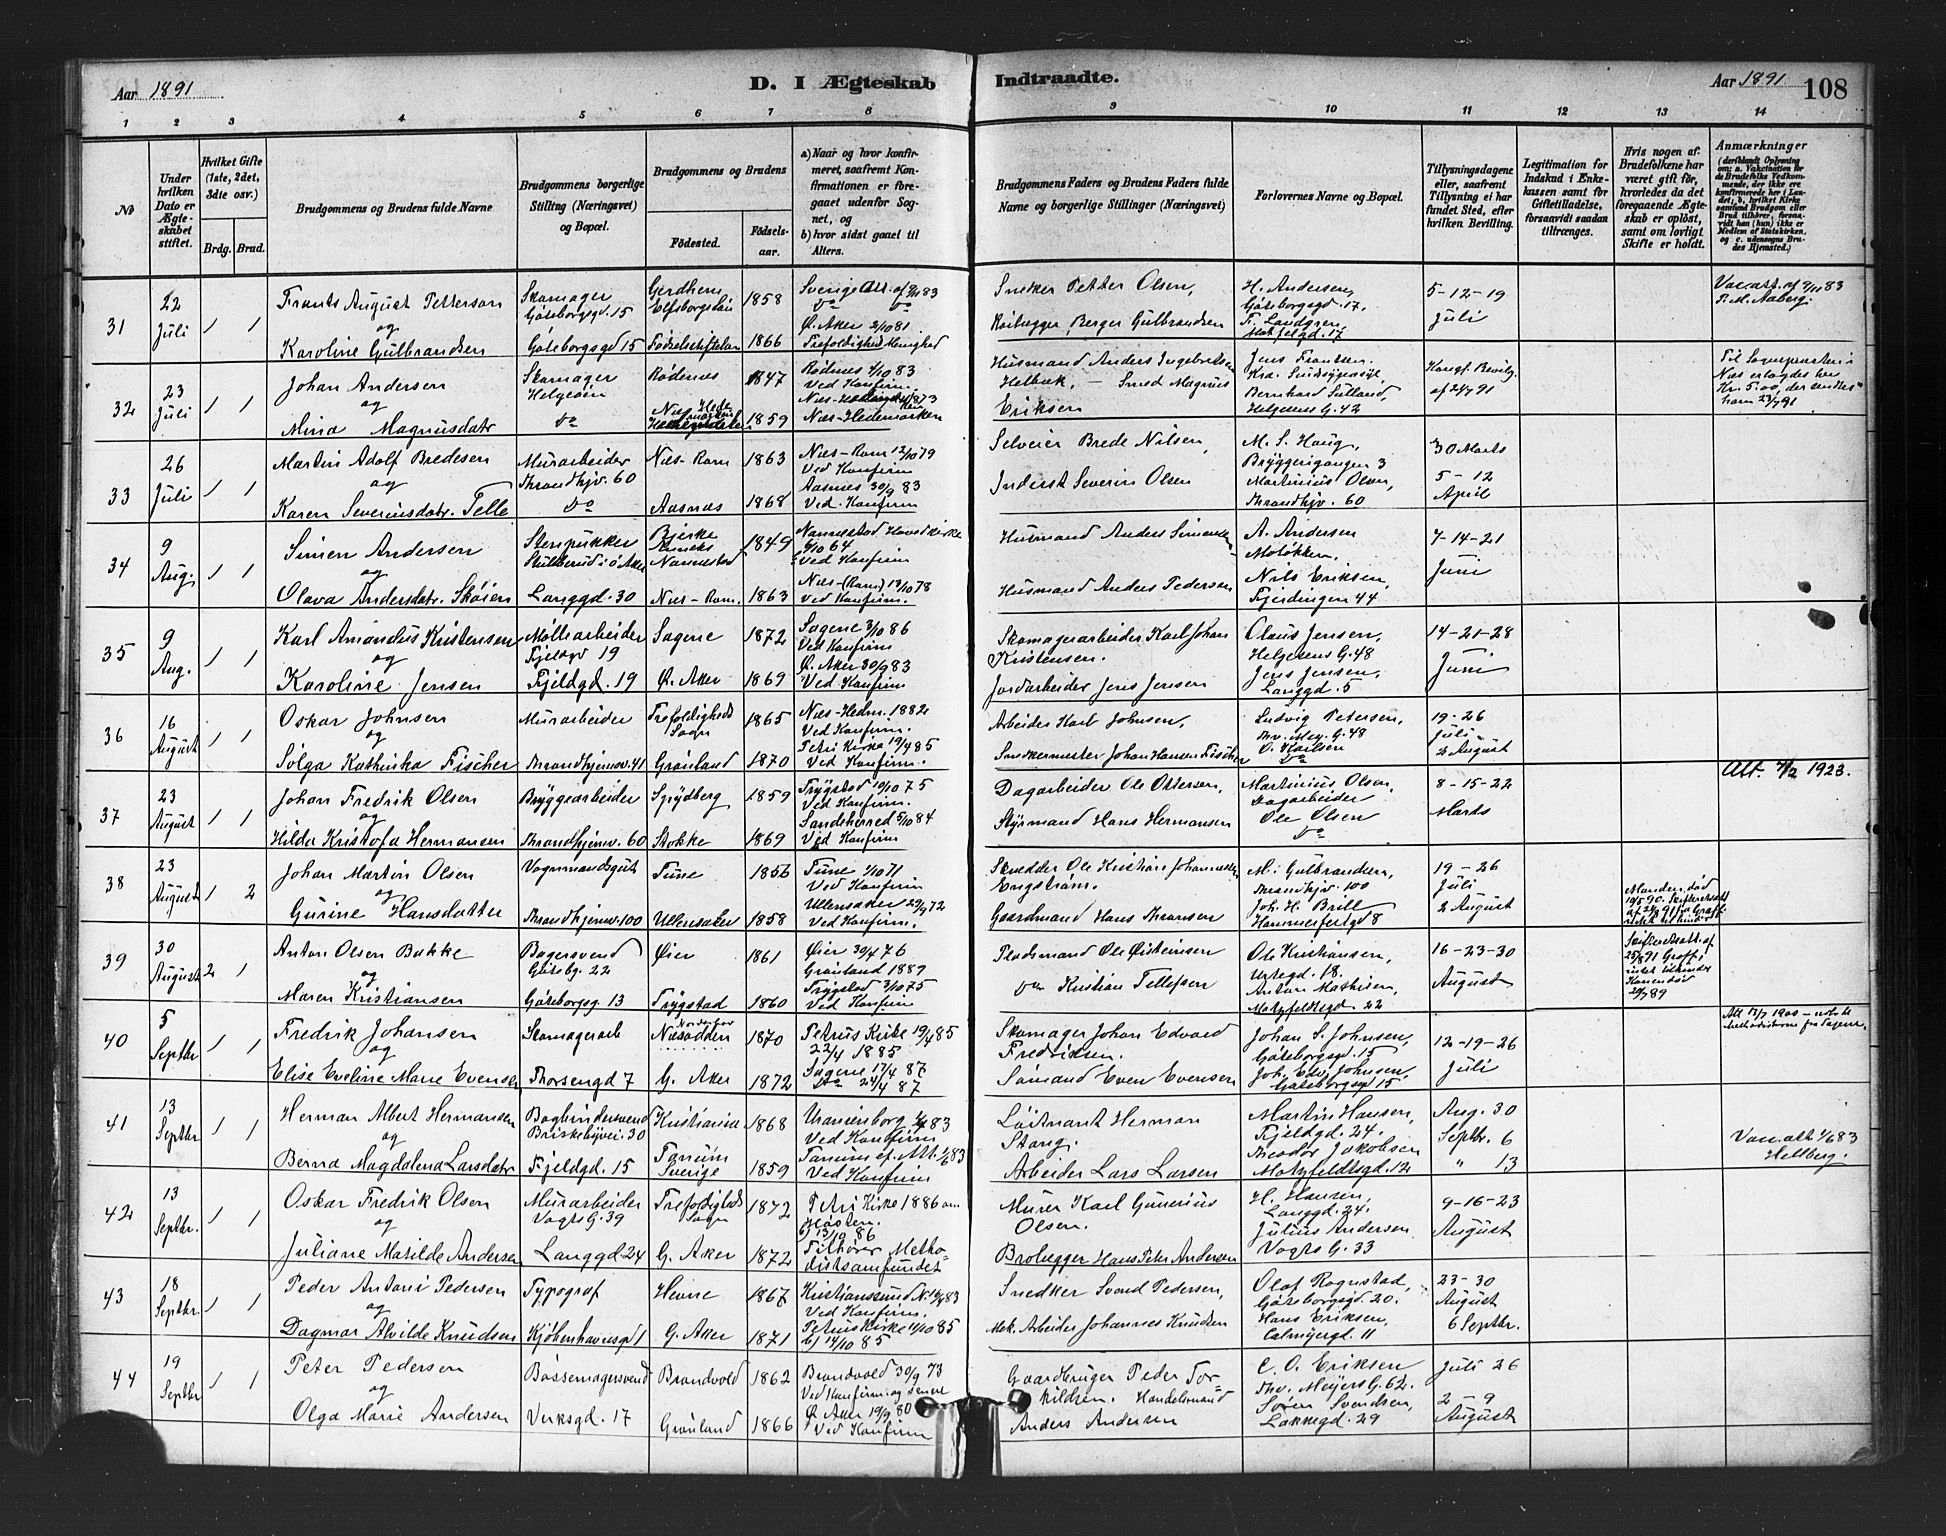 Aar 1891
D. I Ægteskab Indtraadte.
Aar 1891 108
1 2 3 4 5 6 7 8 9 10 11 12 13 14
№
Under hvilken Dato er Ægteskabet stiftet.
Hvilket Gifte (1ste, 2det, 3die osv.)
Brdg. Brud.
Brudgommens og Brudens fulde Navne
Brudgommens borgerlige Stilling (Næringsvei) og Bopæl.
Brudgommens og Brudens
Fødested.
Fødselsaar.
a) Naar og hvor konfirmeret, saafremt Konfirmationen er foregaaet udenfor Sognet, og
b) hvor sidst gaaet til Alters.
Brudgommens Faders og Brudens Faders fulde Navne og borgerlige Stillinger (Næringsvei)
Forlovernes Navne og Bopæl.
Tillysningsdagene eller, saafremt Tillysning ei har fundet Sted, efter hvilken Bevilling.
Legitimation for Indskud i Enkekassen samt for Giftetilladelse, forsaavidt saadan tiltrænges.
Hvis nogen af Brudefolkene har været gift før, hvorledes da det foregaaende Ægteskab er opløst, samt om lovligt Skifte er holdt.
Anmærkninger
(deriblandt Oplysning om: a. Vaccination for de Brudefolks Vedkommende, der ikke ere konfirmerede her i Landet; b, hvilket Kirkesamfund Brudgom eller Brud tilhører, forsaavidt han (hun) ikke er Medlem af Statskirken, og c. udensogns Brudes Hjemsted.)
31 22 Juli 1 1
Frants August Petterson
og
Karoline Gulbrandsen
Skomager
Göteborgsgd. 15
Göteborgsgd 15
Gerdhem
Elfsborgslän 1858
Fødselsstiftelsen 1866
Sverige Att. af 2/11 83
do do
Ø. Aker 2/10 81
Trefoldighed Menighed
Snedker Petter Olsen,
Berger Gulbrandsen
H. Andersen,
Göteborgsgd. 17,
F. Landgren,
Motzfelgd. 17
5-12-19
Juli
Vac. att. af 2/11 83
32 23 Juli 1 1
Johan Andersen
og
Mina Magnusdatr
Skomager
Helgesen
do
Rødenes 1847
Næs Hedemarken 1859
Rødenes 1/10 83
Ved Konfirm.
Næs-Hedemarken
Husmand Anders Ingebretsen
Helbæk, - Smed Magnus
Eriksen
Jens Frantsen.
Kra. Sindsygeasyl,
Bernhard Sulland,
Helgesens G. 42
Kongl. Bevilg.
af 24/7 91
Næs erlagdes her
Kr. 5.00, der sendtes
ham 23/7 91
33 26 Juli 1 1
Martin Adolf Bredesen
og
Karen Severinsdatr. Telle
Murarbeider
Throndhjv. 60
do
Næs-Rom. 1863
Aasnes 1868
Næs-Rom 12/10 79
Ved Konfirm
Aasnes 30/9 83
Ved. Konfirm
Selveier Brede Nilsen,
Inderst Severin Olsen
M. S. Haug,
Bryggerigangen 3
Martinius Olsen,
Throndhjv. 60
30 Marts
5-12
April
34 9 Aug. 1 1
Simen Andersen
og
Olava Andersdatr. Skøien
Stenpukker
Langgd. 30
Bjerke
Annex
Nannestad 1849
Næs-Rom. 1863
Nannestad Hovedkirke
9/10 64
Ved Konfirm
Næs-(Rom) 13/10 78
Ved Konfirm.
Husmand Anders Simensen
Husmand Anders Pedersen
A. Andersen
Moløkken.
Nils Eriksen,
Fjerdingen 44
7-14-21
Juni
35 9 Aug. 1 1
Karl Amandus Kristensen
og
Karoline Jensen
Møllearbeider
Fjeldgd 19
Fjeldgd. 19
Sagene 1872
Ø. Aker 1869
Sagene 3/10 86
Ved Konfirm
Ø. Aker 30/9 83
Ved Konfirm
Skomagerarbeider Karl Johan
Kristensen.
Jordarbeider Jens Jensen
Olaus Jensen,
Helgesens G. 48
Jens Jensen,
Langgd. 5
14-21-28
Juni
36 16 August 1 1
Oskar Johnsen
og
Solga Kathinka Fischer
Murarbeider
Throndhjemsv. 41
Trefoldigheds
Sogn 1865
Grønland 1870
Næs-Hedm. 1882
Ved Konfirm.
Petri Kirke 19/4 85
Ved Konfirm.
Arbeider Karl Johnsen,
Snedkermester Johan Hansen Fischer
Ludvig Petersen,
Thv. Mey. G. 48
O. Karlsen
do
19-26
Juli
2 August
37 23 August 1 1
Johan Fredrik Olsen
og
Hilda Kristofa Hermansen
Bryggearbeider
Throndhjemv. 60
Spydberg 1859
Stokke 1869
Trygstad 10/10 75
Ved Konfirm.
Sandeherred 5/10 84
Ved Konfirm
Dagarbeider Ole Ottersen,
Styrmand Hans Hermansen
Martinius Olsen,
Dagarbeider
Ole Olsen
do
8-15-22
Marts
Att. 7/2 1923.
38 23 August 1 2
Johan Martin Olsen
og
Gurine Hansdatter
Vognmandsgut
Throndhjemv. 100
Tune 1856
Ullensaker 1858
Tune 1/10 71
Ved Konfirm
Ullensaker 29/9 72
Ved Konfirm.
Skrædder Ole Kristian Johannesen
Engstrøm.
Gaardmand Hans Thronsen
M. Gulbrandsen,
Throndhjv. 100
Joh. H. Brill
Hammerfestgd 8
19-26
Juli
2 August
Manden død
10/5 90. Skifteretsatt
39 30 August 2 1
Anton Olsen Bakke
og
Maren Kristiansen
Bagersvend
Gøtebg. 22
Göteborgsg. 13
Øier 1861
Trygstad 1860
Øier 30/4 76
Grønland 1889
Trygstad 3/10 75
Ved Konfirm
Pladsmand Ole Østensen
do Kristian Tellefsen
Ole Kristiansen,
Urtegd. 18.
Anton Mathisen,
Motzfeldtsgd. 22
16-23-30
August
Skifteretsatt. af
25/8 91
40 5 Septbr 1 1
Fredrik Johansen
og
Elise Eveline Marie Evensen
Skomagerarb
Thorsengd 7
Næsodden 1870
G. Aker 1872
Petrus Kirke 19/4 85
22/4 1885
Sagene 17/4 87
do 24/4 87
Skomager Johan Edvard
Fredriksen.
Sømand Even Evensen
Johan S. Johnsen,
Göteborgsgd. 15
Joh. Edv. Johnsen,
Göteborgsgd 15
12-19-26
Juli
Att 13/7 1900
41 13 Septbr 1 1
Herman Albert Hermansen
og
Berna Magdalena Larsdatr
Bogbindersvend
Briskebyvei. 30
Fjeldgd. 15
Kristiania 1868
Tanum
Sverige 1859
Uranienborg 83
Ved Konfirm.
Tanum ef. Att. 1/6 83
Ved Konfirm
Løitnant Herman
Stang.
Arbeider Lars Larsen
Martin Hansen,
Fjeldgd. 24.
Theodor Jakobsen
Motzfeldtsgd. 12
Aug. 30
Septbr. 6
" 13
Vac. att 1/6 83
Hellberg.
42 13 Septbr. 1 1
Oskar Fredrik Olsen
og
Juliane Matilde Andersen
Murarbeider
Vogts G. 39
Langgd 24
Trefoldigheds
Sogn 1872
G. Aker 1872
Petri Kirke 1886 om
Høsten.
b) 13/10 86
Tilhører Metho-
distsamfundet
Murer Karl Gunerius
Olsen.
Brolægger Hans Peter Andersen
H. Hansen,
Langgd. 24.
Julius Andersen
Vogts G. 33
9-16-23
August
43 18 Septbr. 1 1
Peder Antoni Pedersen
og
Dagmar Alvilde Knudsen
Typograf
Kjøbenhavnsgd 1
Hevne 1867
G. Aker 1871
Kristianssund N. 83
Ved Konfirm.
Petruskirke 11/10 85
b) 14/10 85
Snedker Svend Pedersen,
Mek. Arbeider Johannes Knudsen
Olaf Rognstad,
Göteborgsgd 20.
Hans Eriksen,
Calmeyergd. 11
23-30
August
6 Septbr.
44 19 Septbr 1 1
Peter Pedersen
og
Olga Marie Andersen
Bøssemagersvend
Verksgd. 17
Brandvold 1862
Grønland 1866
Brandvold 30/9 73
Ved Konfirm. og senere
Ø. Aker 19/9 80
Ved Konfirm
Gaardbruger Peder Tor-
kildsen. Handelsmand
Anders Andersen
C. O. Eriksen
Thv. Meyers G. 62.
Søren Svendsen,
Lakkegd. 29
Juli 26
2-9
August